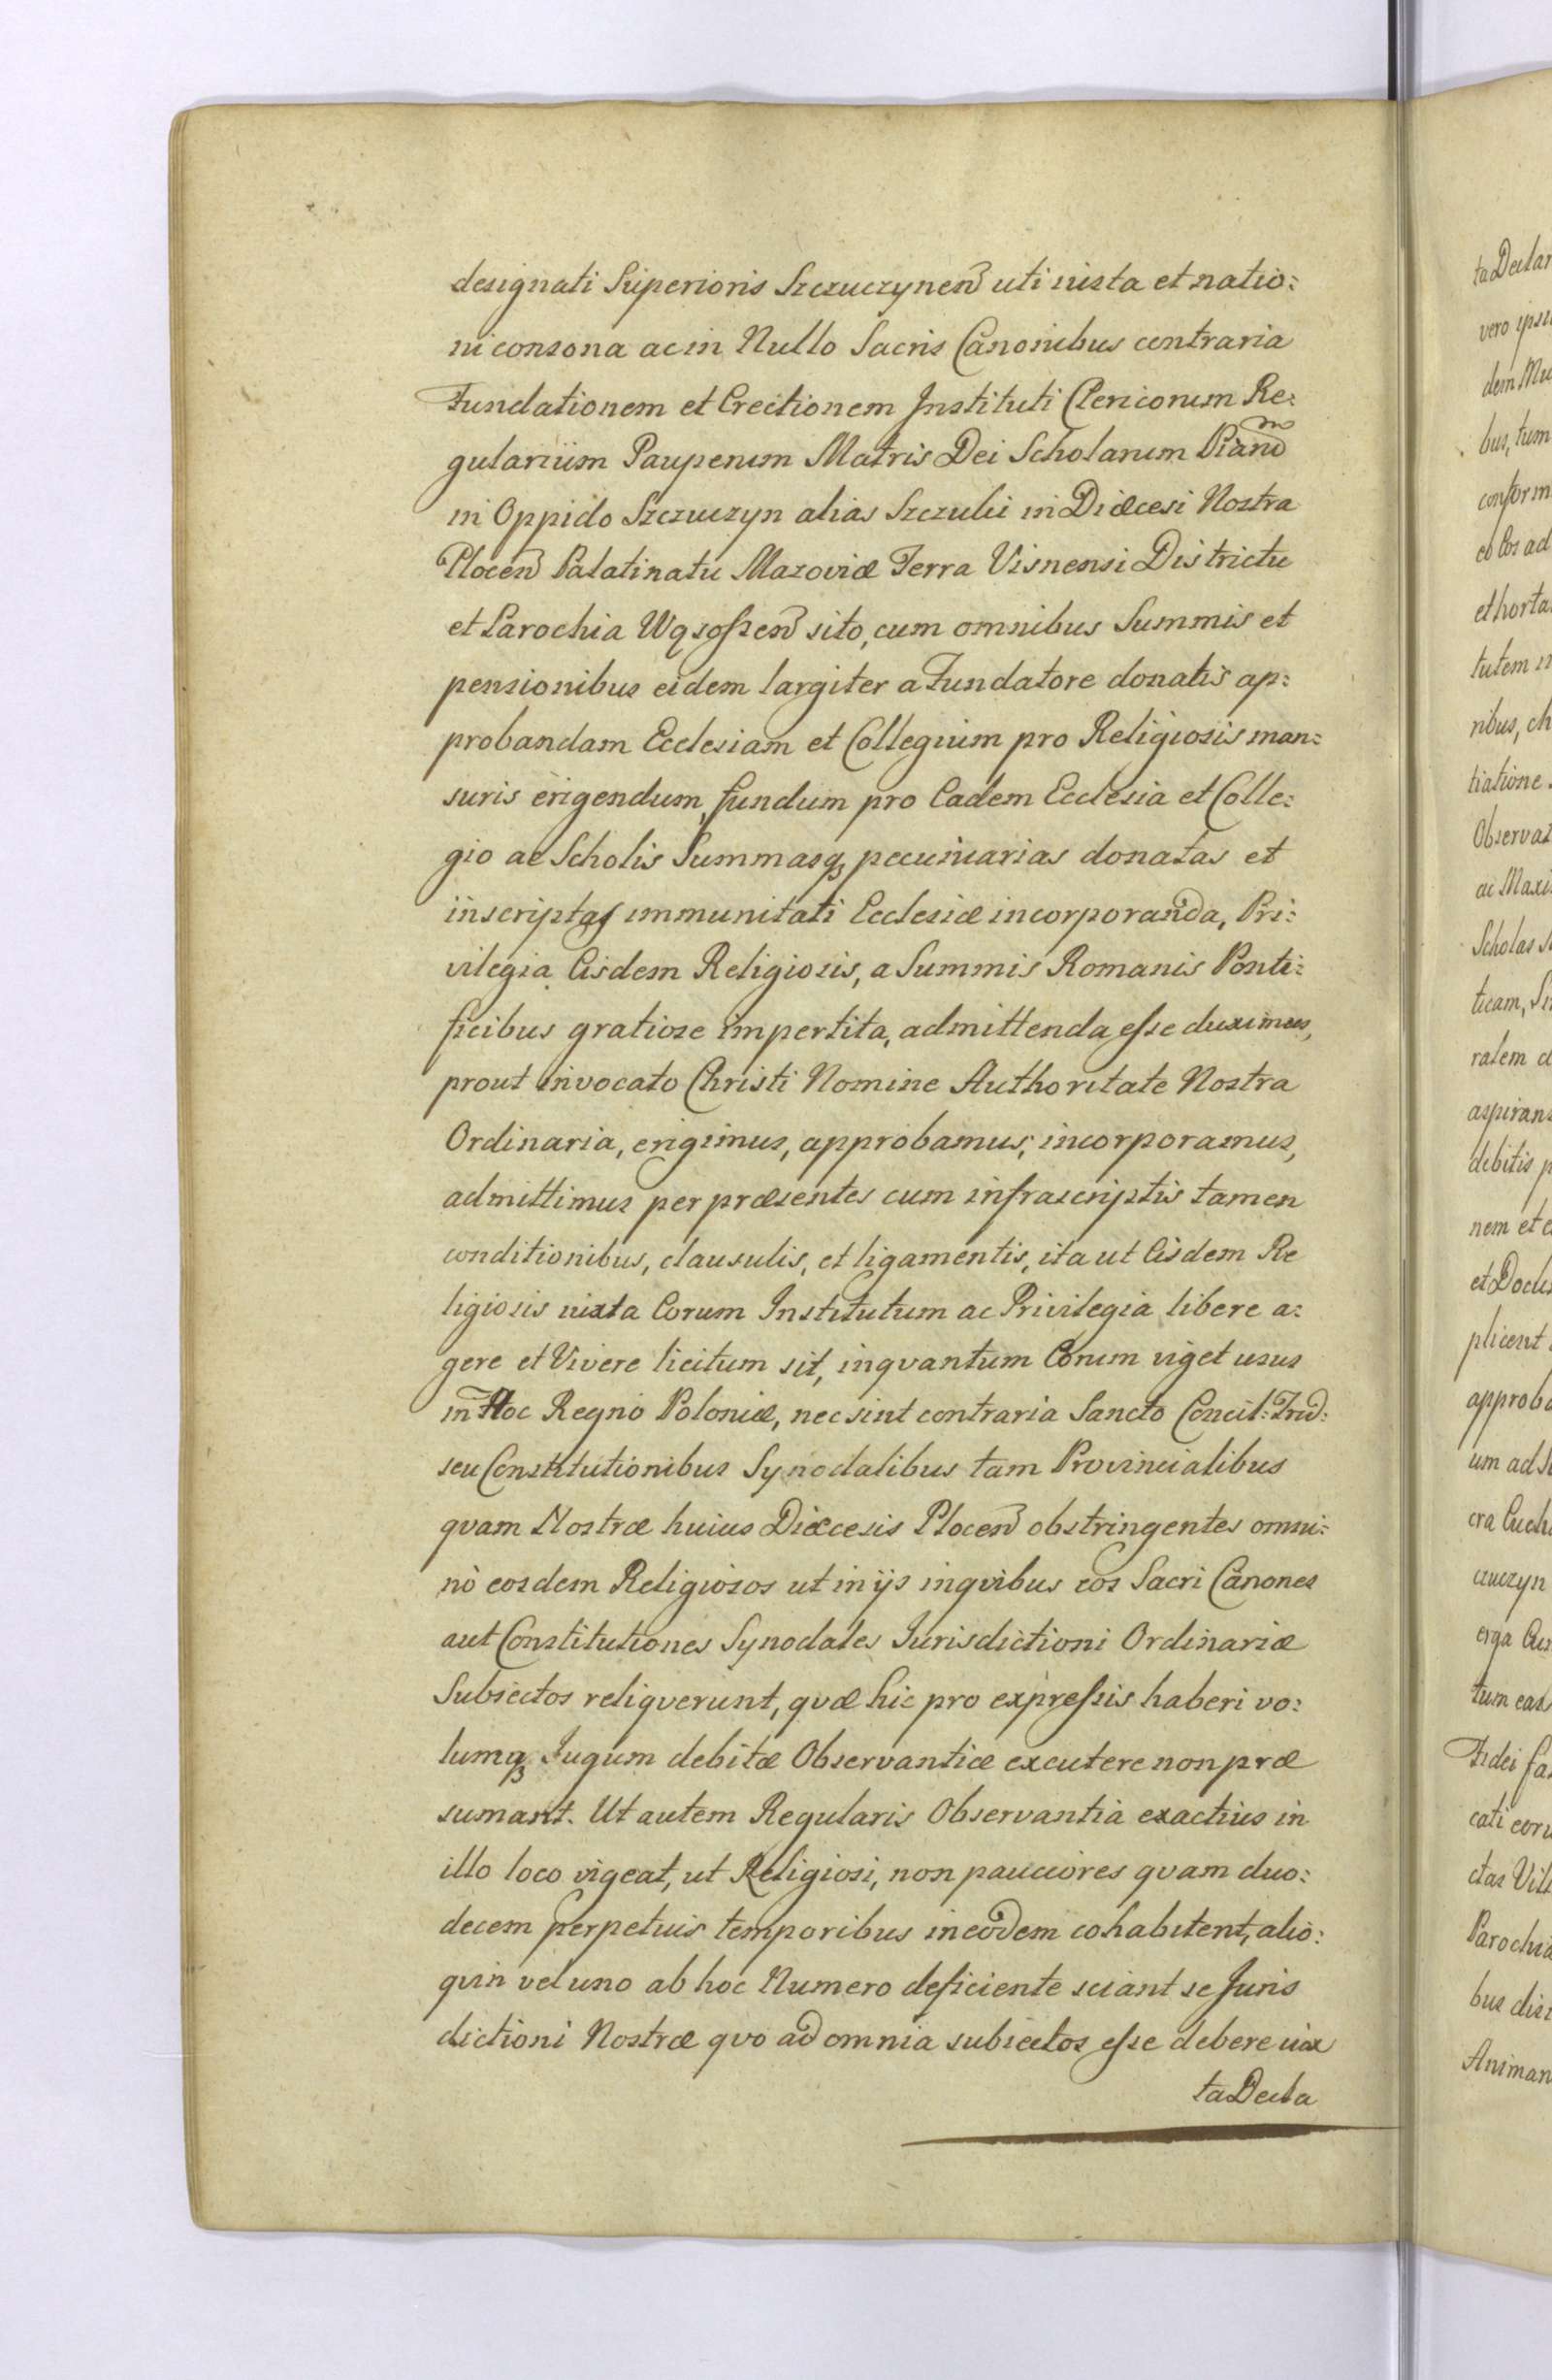 designati Superioris Szczuczynen̄ uti iusta et ratio:
ni consona ac in Nullo Sacris Canonibus contraria
Fundationem et Erectionem Instituti Clericorum Re:
gularium Pauperum Matris Dei Scholarum Piarū
in Oppido Szczuczyn alias Szczuki in Diœcesi Nostra
Plocen̄ Palatinatu Mazoviæ Terra Visnensi Districtu
et Parochia Wąsoszen̄ sito, cum omnibus Summis et
pensionibus eidem largiter a Fundatore donatis ap:
probandam Ecclesiam et Collegium pro Religiosis man:
suris erigendum, fundum pro Eadem Ecclesia et Colle:
gio ac Scholis Summasq; pecuniarias donatas et
inscriptas immunitati Ecclesiæ incorporanda, Pri:
vilegia Eisdem Religiosis, a Summis Romanis Ponti:
ficibus gratiose impertita, admittenda esse duximus,
prout invocato Christi Nomine Authoritate Nostra
Ordinaria, erigimus, approbamus, incorporamus,
admittimus per præsentes cum infrascriptis tamen
conditionibus, clausulis, et ligamentis, ita ut Eisdem Re
ligiosis iuxta Eorum Institutum ac Privilegia libere a:
gere et Vivere licitum sit, inqvantum Eorum viget usus
in Hoc Regno Poloniæ, nec sint contraria Sancto Concil: Trid:
seu Constitutionibus Synodalibus tam Provincialibus
qvam Nostræ huius Diœcesis Plocen̄ obstringentes omni:
nò eosdem Religiosos ut in ijs inqvibus eos Sacri Canones
aut Constitutiones Synodales Iurisdictioni Ordinariæ
Subiectos reliqverunt, qvæ hic pro expressis haberi vo:
lumq; Iugum debitæ Observantiæ excutere non præ
sumant. Ut autem Regularis Observantia exactius in
illo loco vigeat, ut Religiosi, non pauciores qvam duo:
decem perpetuis temporibus in eodem cohabitent, alio:
qvin vel uno ab hoc Numero deficiente sciant se Juris
dictioni Nostræ qvo ad omnia subiectos esse debere iux
ta Decla